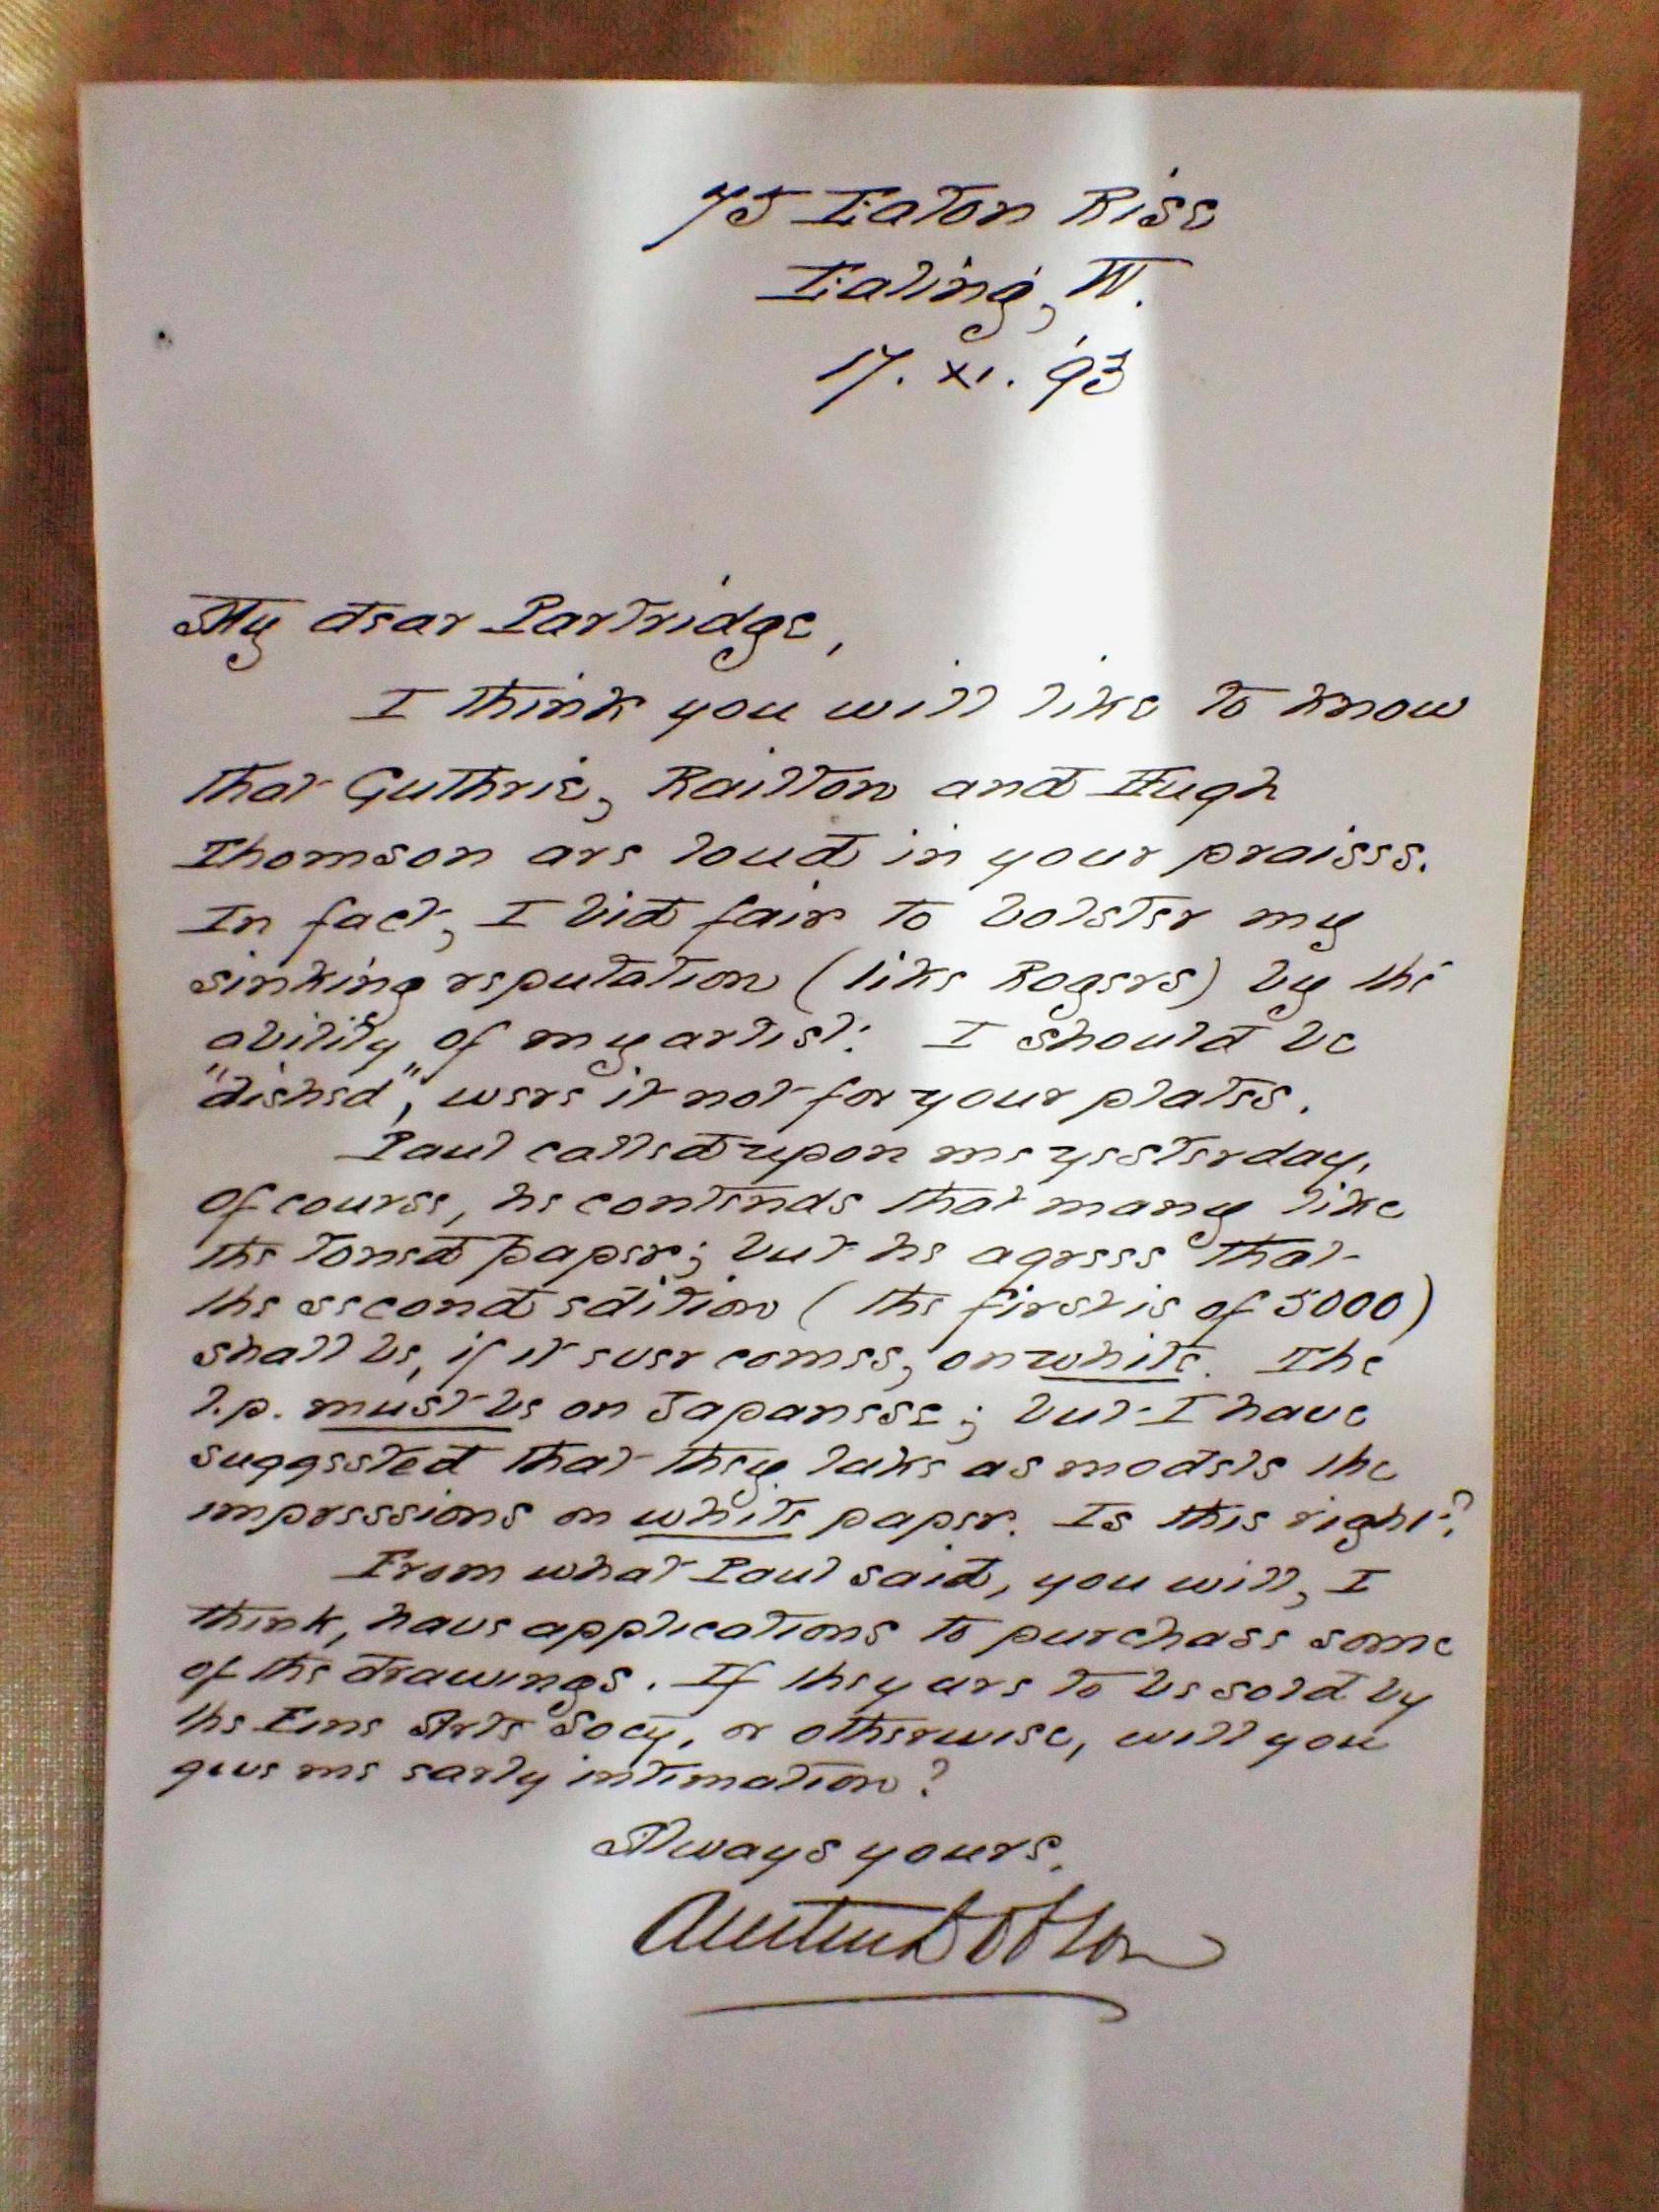 75 Eaton Rise
Ealing, W.
17. xi. '93
My dear Partridge,
I think you will like to know
that Guthrie, Railton and Hugh
Thomson are loud in your praises.
In fact, I bid fair to bolster my
sinking reputation (like Rogers) by the
ability of my artist. I should be
"dished", were it not for your plates.
Paul called upon me yesterday.
Of course, he contends that many like
the toned paper; but he agrees that
the second edition (the first is of 5000)
shall be, if it ever comes, on white. The
l.p. must be on Japanese; but I have
suggested that they take as models the
impressions on white paper. Is this right?
From what Paul said, you will, I
think, have applications to purchase some
of the drawings. If they are to be sold by
the Fine Arts Socy, or otherwise, will you
give me early intimation?
Always yours,
Austin Dobson